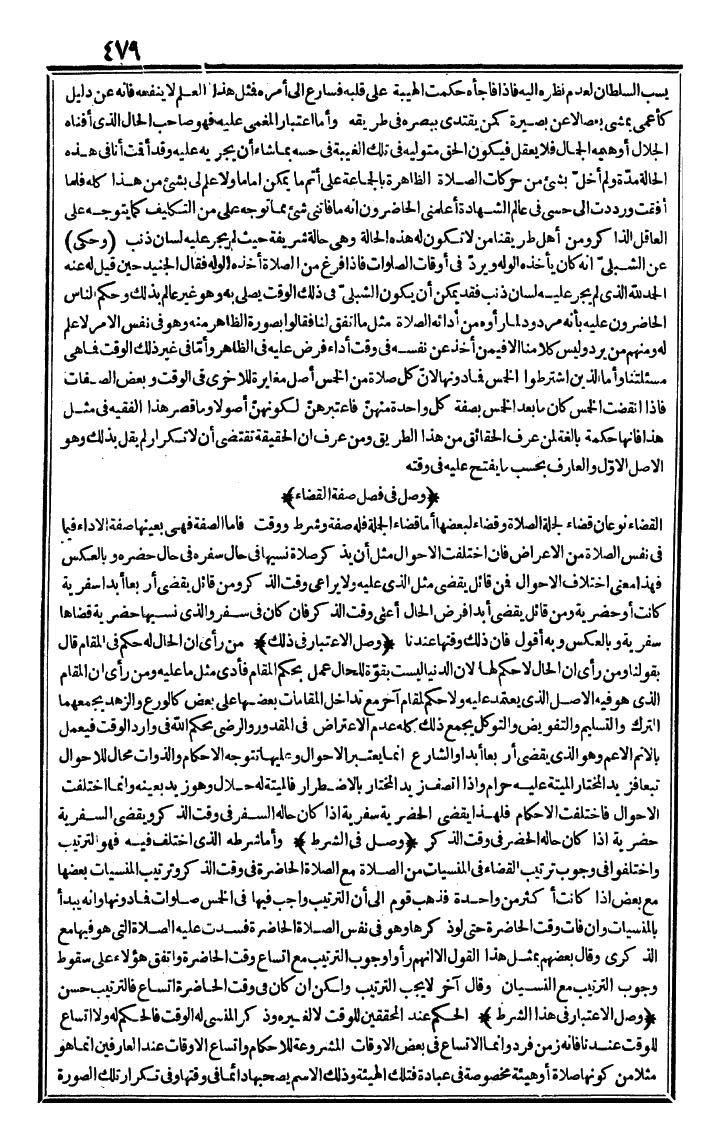 ٤٧٩
يسب السلطان لعدم نظره اليه فاذا فاجأه حكمت الهيبة على قلبه فسارع الى أمره فمثل هذا العلم لا ينفعه فانه عن دليل
كأعمى يمشى بعصا لا عن بصيرة كمن يقتدى ببصره فى طريقه وأما اعتبار المغمى عليه فهو صاحب الحال الذى أفناه
الجلال أو هيمه الجمال فلا يعقل فيكون الحق متوليه فى تلك الغيبة فى حسه بما شاء أن يجريه عليه وقد أقت أنا فى هذه
الحالة مدّة ولم أخلّ بشئ من حركات الصلاة الظاهرة بالجماعة على أتم ما يمكن اماما ولا علم لى بشئ من هذا كله فلما
أفقت ورددت الى حسى فى عالم الشهادة أعلمنى الحاضرون انه ما فاتنى شئ مما توجه على من التكليف كما يتوجه على
العاقل الذاكر ومن أهل طريقنا من لا تكون له هذه الحالة وهى حالة شريفة حيث لم يجر عليه لسان ذنب (وحكى)
عن الشبلىّ انه كان يأخذه الوله ويردّ فى أوقات الصلوات فاذا فرغ من الصلاة أخذه الوله فقال الجنيد حين قيل له عنه
الحمد لله الذى لم يجر عليه لسان ذنب فقد يمكن أن يكون الشبلىّ فى ذلك الوقت يصلى به وهو غير عالم بذلك وحكم الناس
الحاضرون عليه بأنه مردود لما رأوه من أدائه الصلاة مثل ما اتفق لنا فقالوا بصورة الظاهر منه وهو فى نفس الامر لا علم
له ومنهم من يرد وليس كلامنا الا فيمن أخذ عن نفسه فى وقت أداء فرض عليه فى الظاهر وأمّا فى غير ذلك الوقت فما هى
مسئلتنا وأما الذين اشترطوا الخمس فما دونها لانّ كل صلاة من الخمس أصل مغايرة للاخرى فى الوقت وبعض الصفات
فاذا انقضت الخمس كان ما بعد الخمس بصفة كل واحدة منهنّ فاعتبرهنّ لكونهنّ أصولا وما قصر هذا الفقيه فى مثل
هذا فانها حكمة بالغة لمن عرف الحقائق من هذا الطريق ومن عرف ان الحقيقة تقتضى أن لا تكرار لم يقل بذلك وهو
الاصل الاوّل والعارف بحسب ما يفتح عليه فى وقته
﴿وصل فى فصل صفة القضاء﴾
القضاء نوعان قضاء لجلة الصلاة وقضاء لبعضها أما قضاء الجلة فله صفة وشرط ووقت فاما الصفة فهى بعينها صفة الاداء فيما
فى نفس الصلاة من الاعراض فان اختلفت الاحوال مثل أن يذكر صلاة نسيها فى حال سفره فى حال حضره وبالعكس
فهذا معنى اختلاف الاحوال فمن قائل يقضى مثل الذى عليه ولا يراعى وقت الذكر ومن قائل يقضى أربعا أبدا سفرية
كانت أو حضرية ومن قائل يقضى أبدا فرض الحال أعنى وقت الذكر فان كان فى سفر والذى نسيها حضرية قضاها
سفرية وبالعكس وبه أقول فان ذلك وقتها عندنا ﴿وصل الاعتبار فى ذلك﴾ من رأى ان الحال له حكم فى المقام قال
بقولنا ومن رأى ان الحال لا حكم لها لان الدنيا ليست بقوّة للحال عمل بحكم المقام فأدى مثل ما عليه ومن رأى ان المقام
الذى هو فيه الاصل الذى يعتمد عليه ولا حكم لمقام آخر مع تداخل المقامات بعضها على بعض كالورع والزهد يجمعهما
الترك والتسليم والتفويض والتوكل يجمع ذلك كله عدم الاعتراض فى المقدور والرضى بحكم اللّه فى وارد الوقت فيعمل
بالاتم الاعم وهو الذى يقضى أربعا أبدا والشارع انما يعتبر الاحوال وعليها تتوجه الاحكام والذوات محال للاحوال
تبعا فزيد المختار الميتة عليه حرام واذا اتصف زيد المختار بالاضطرار فالميتة له حلال وهو زيد بعينه وانما اختلفت
الاحوال فاختلفت الاحكام فلهذا يقضى الحضرية سفرية اذا كان حاله السفر فى وقت الذكر ويقضى السفرية
حضرية اذا كان حاله الحضر فى وقت الذكر ﴿وصل فى الشرط﴾ وأما شرطه الذى اختلف فيه فهو الترتيب
واختلفوا فى وجوب ترتيب القضاء فى المنسيات من الصلاة مع الصلاة الحاضرة فى وقت الذكر وترتيب المنسيات بعضها
مع بعض اذا كانت أكثر من واحدة فذهب قوم الى أن الترتيب واجب فيها فى الخمس صلوات فما دونها وانه يبدأ
بالمنسيات وان فات وقت الحاضرة حتى لو ذكرها وهو فى نفس الصلاة الحاضرة فسدت عليه الصلاة التى هو فيها مع
الذكرى وقال بعضهم بمثل هذا القول الا انهم رأوا وجوب الترتيب مع اتساع وقت الحاضرة واتفق هؤلاء على سقوط
وجوب الترتيب مع النسيان وقال آخر لا يجب الترتيب ولكن ان كان فى وقت الحاضرة اتساع فالترتيب حسن
﴿وصل الاعتبار فى هذا الشرط﴾ الحكم عند المحققين للوقت لا لغيره وذكر المنسى له الوقت فالحكم له ولا اتساع
للوقت عندنا فانه زمن فرد وانما الاتساع فى بعض الاوقات المشروعة للاحكام واتساع الاوقات عند العارفين انما هو
مثلا من كونها صلاة أو هيئة مخصوصة فى عبادة فتلك الهيئة وذلك الاسم يصحبها دائما فى وقتها وفى تكرار تلك الصورة